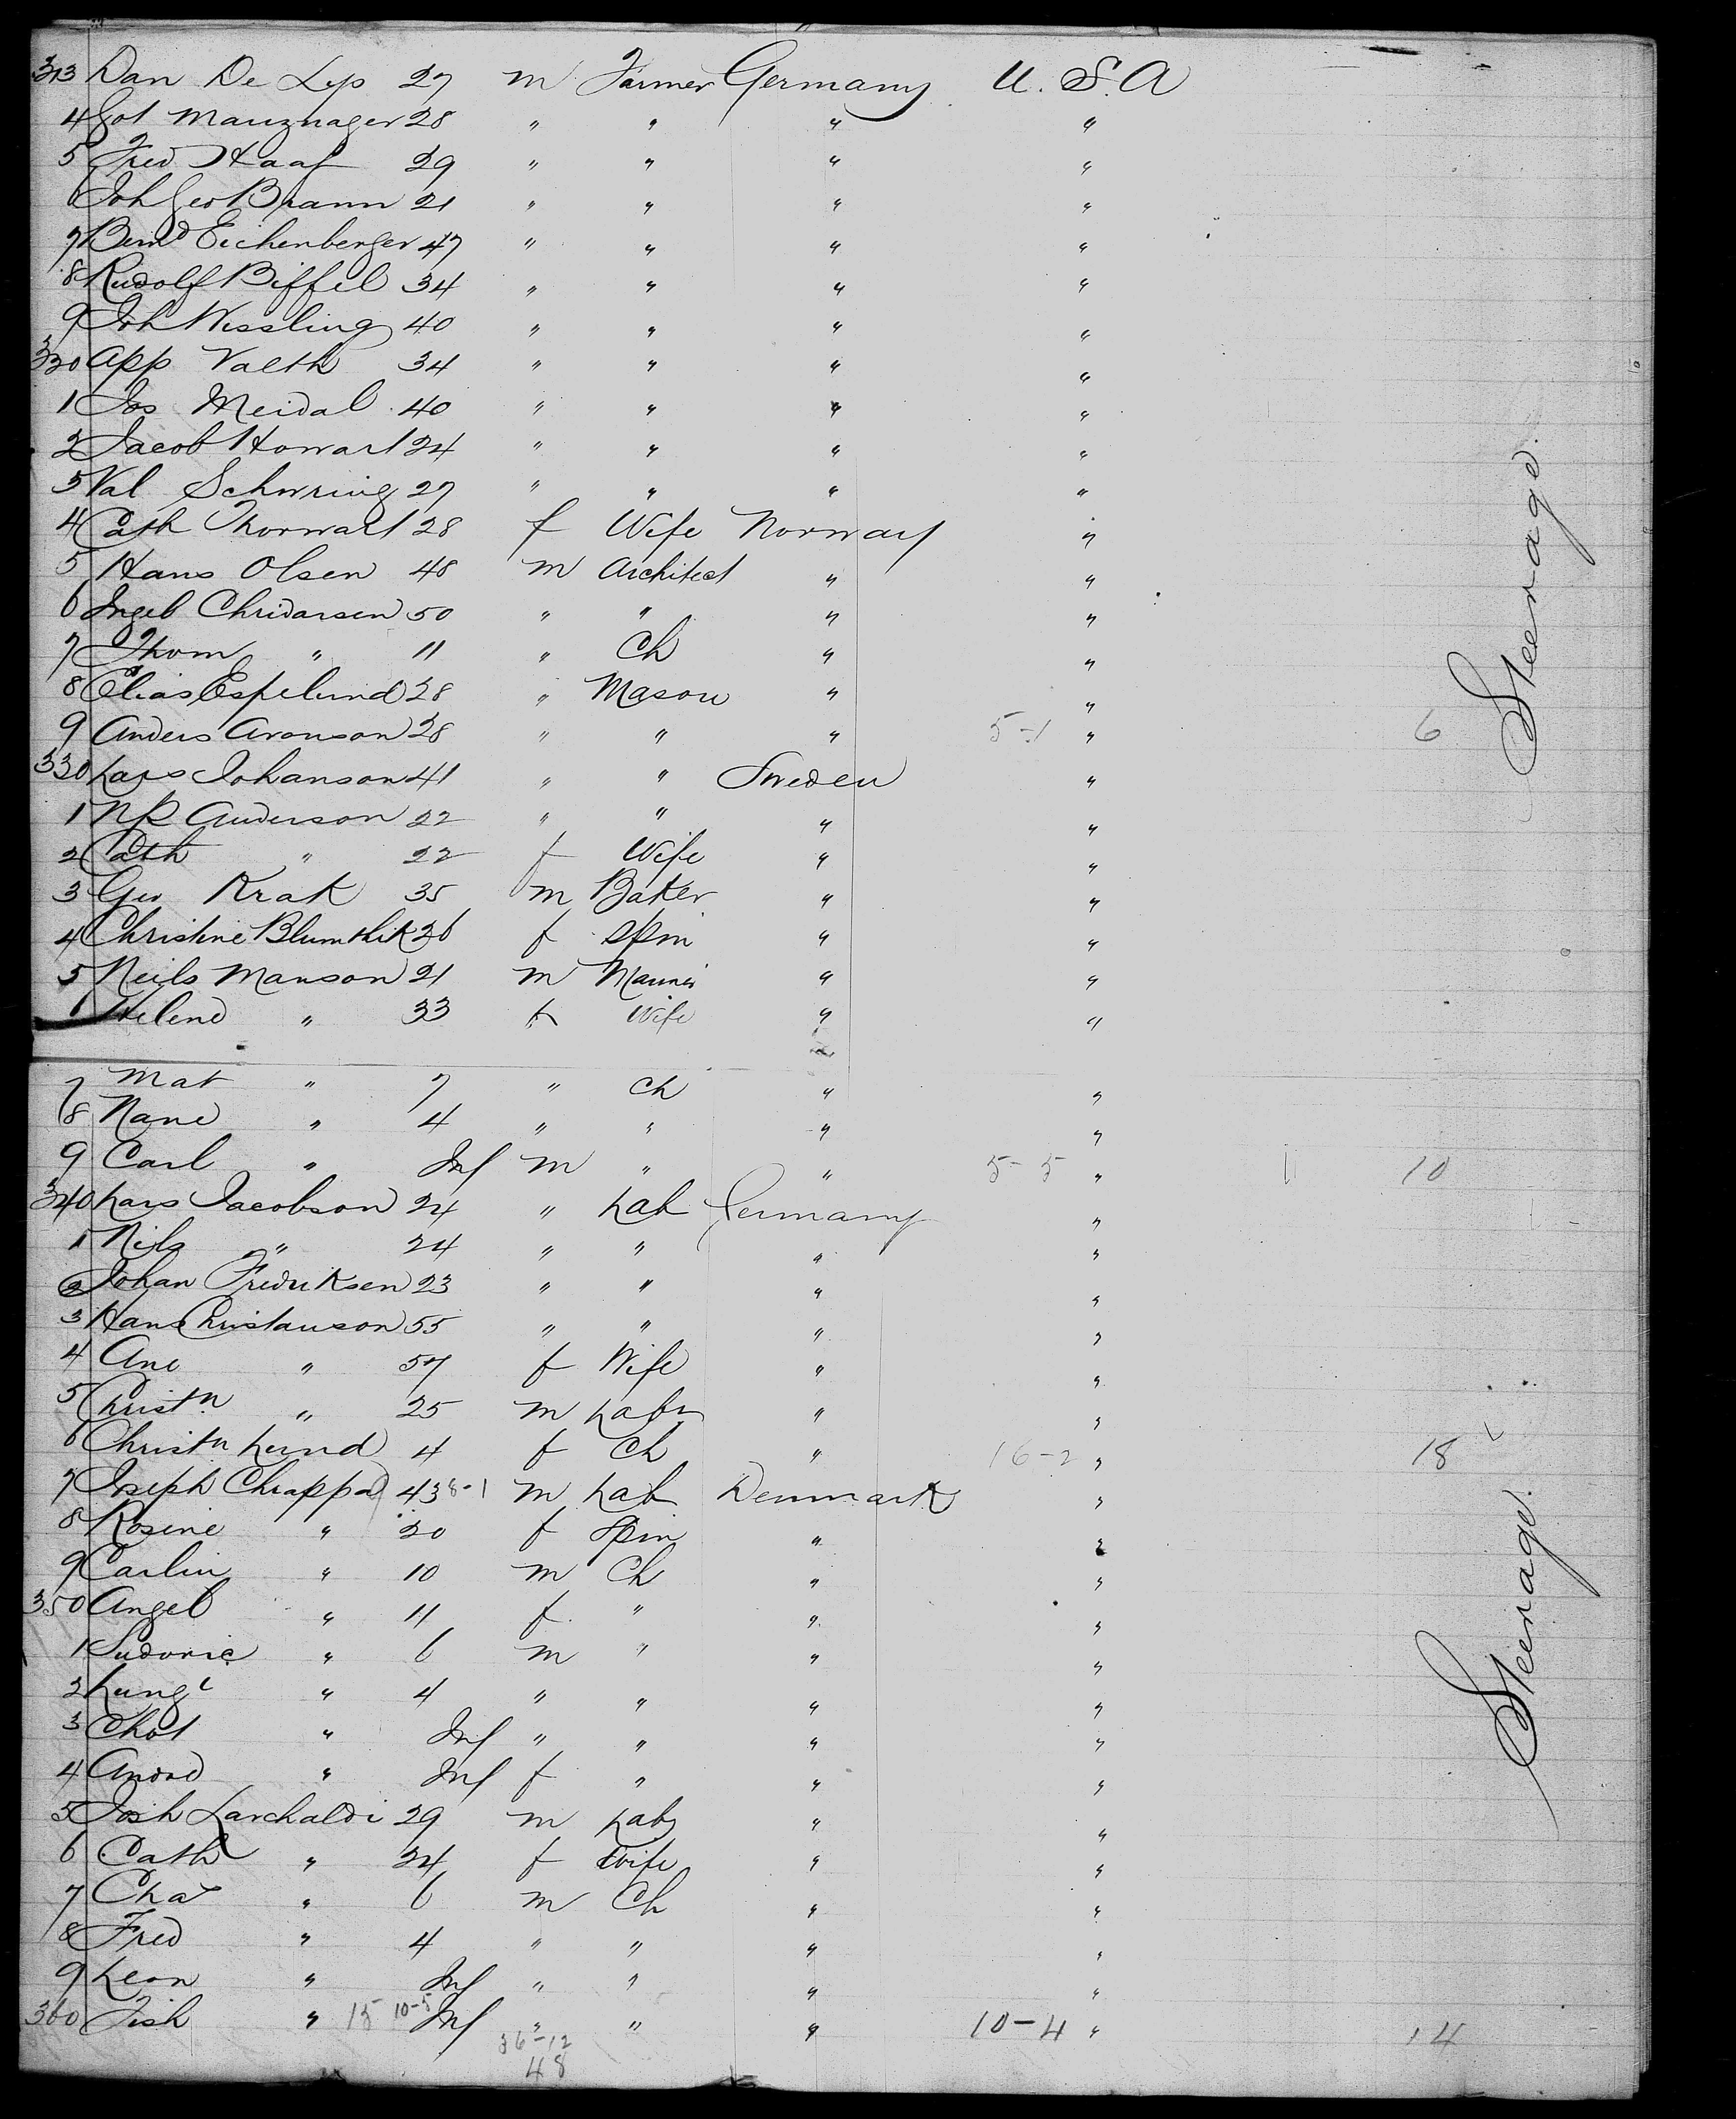 313 Dan De Lys 27 m Farmer Germany U. S. A
4 Got Mauznager 28 " " " "
5 Fred Haaf 29 " " " "
6 Joh Geo Brann 21 " " " "
7 Bernd Eichenberger 47 " " " "
8 Rudolf Biffel 34 " " " "
9 Joh Wissling 40 " " " "
320 App Valth 34 " " " "
1 Jos Meidal 40 " " " "
2 Jacob Howart 24 " " " "
3 Val Schwring 27 " " " "
4 Cath Thorwart 28 f Wife Norway "
5 Hans Olsen 48 m Architect " "
6 Ingeb Chridarsen 50 " " " "
7 Thom " 11 " Ch " "
8 Elias Espelund 28 " Mason " "
9 Anders Aronson 28 " " " 5-1 " 6
Steerage.
330 Lars Johanson 41 " " Sweden "
1 NP Anderson 22 " " " "
2 Cath " 22 f Wife " "
3 Geo Krak 35 m Baker " "
4 Christine Blumthik 26 f Spin " "
5 Neils Manson 21 m Mariner " "
6 Helene " 33 f Wife " "
7 Mat " 7 " Ch " "
8 Nane " 4 " " " "
9 Carl " Inf m " " 5-5 " 10
340 Lars Jacobson 24 " Lab Germany "
1 Nils " 24 " " " "
2 Johan Fredriksen 23 " " " "
3 Hans Christanson 55 " " " "
4 Ane " 57 f Wife " "
5 Christn " 25 m Labr " "
6 Christn Lund 4 f Ch " 16-2 " 18
7 Joseph Chiappa 43 8-1 m Lab Denmark "
8 Rosine " 20 f Spin " "
9 Carlin " 10 m Ch " "
350 Angel " 11 f " " "
1 Ludovic " 6 m " " "
2 Lungi " 4 " " " "
3 Chot " Inf " " " "
4 " Inf f " " "
Steerage.
5 Josh Larchaldi 29 m Lab " "
6 Cath " 24 f Wife " "
7 Chas " 6 m Ch " "
8 Fred " 4 " " " "
9 Leon " Inf " " " "
360 Fish " 15 10-5 Inf " " " 10-4 " 14
36-12
48